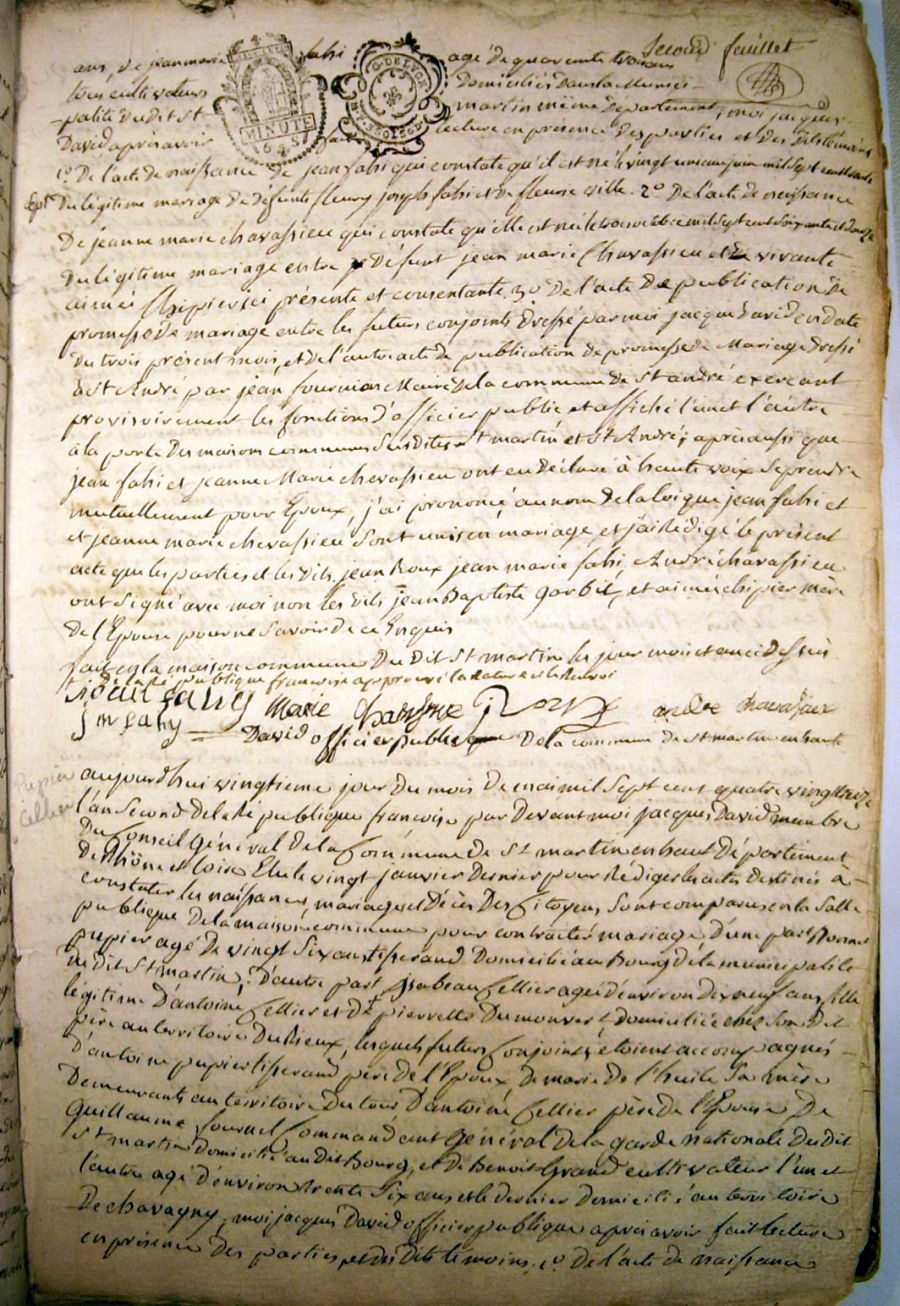 Second feuillet
ans, de jean marie fahi agé de quarente trois ans
tous cultivateurs domiciliés dans la munici-
palité du dit St martin même departement, moi jacques
David après avoir fait lecture en présence des parties et des dits témoins
MINUTE
G. DE LYON
1o. De l'acte de naissance de jean fahi qui constate qu'il est né le vingt un juin mil sept cent soixante
sept du légitime mariage de défunts fleury joseph fahi et de fleurie ville. 2o. De l'acte de naissance
De jeanne marie chavassieu qui constate qu'elle est née le trois octobre mil sept cent soixante et douze
Du légitime mariage entre défunt jean marie Chavassieu et vivante
aimée Chipier ici présente et consentante. 3o. De l'acte de publication de
promesse de mariage entre les futurs conjoints dressé par moi jacque David en date
du trois présent mois, et de l'autre acte de publication de promesse de Mariage dressé
à St André par jean fournias Maire de la commune de St andré exercant
provisoirement les fonctions d'officier public et affiché l'un et l'autre
à la porte des maisons communes susdites St martin et St André; après aussi que
jean fahi et jeanne Marie chevassieu ont eu déclaré à haute voix se prendre
mutuellement pour Epoux, j'ai prononcé au nom de la loi que jean fahi et
et jeanne marie chevassieu sont unis en mariage, et j'ai rédigé le présent
acte que les parties et les dits jean Roux jean marie fahi, André chavassieu
ont signé avec moi non les dits jean Baptiste garbil, et aimée chipier mère
de l'Epouse pour ne savoir de ce Enquis
fait en la maison commune du dit St martin les jour mois et an ci dessus
de la Ré publique francoise approuvé la rature et le renvoi
marie j Roux andre chavasieux
j m fahy David officier public de la commune de St martin en haut
pupier
cellier
aujourd'hui vingtieme jour du mois de mai mil sept cent quatre vingt treize
l'an second de la Ré publique francoise par devant moi jacques David membre
Du Conseil général de la Commune de St martin en haut département
de Rhône et loire Elu le vingt janvier dernier pour Rédiger les actes destinés à
constater les naissances, mariages et décès des Citoyens, sont comparus en la salle
publique de la maison commune pour contracter mariage d'une part
pupier agé de vingt six ans tisserand domicilié au Bourg de la municipalité
du dit St martin, d'autre part, Isabeau Cellier agée d'environ dix neuf ans, fille
légitime d'antoine Cellier et de pierrette Dumonvert domiciliée chez son dit
père au territoire du Rieux, lesquels futurs Conjoints étoient accompagnés
d'antoine pupier tisserand père de l'Epoux de marie de l'huile sa mère
Demeurants au territoire du tour d'antoine Cellier père de l'Epouse De
Guillaume fournel Commandant général de la garde nationale du dit
St martin domicilié au dit Bourg, et de Benoit Grand cultivateur l'un et
l'autre agé d'environ trente six ans et le dernier domicilié au territoire
De chavagny, moi jacques David officier publique après avoir fait lecture
en présence des parties, et des dits témoins, 1o. De l'acte de naissance